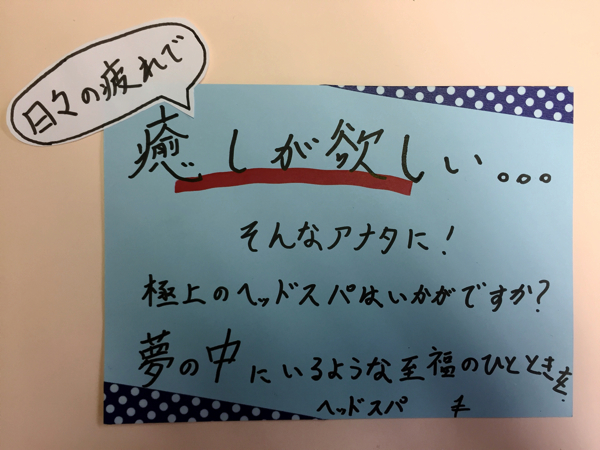 日々の疲れで
癒しが欲しい...
そんなアナタに!
極上のヘッドスパはいかがですか?
夢の中にいるような至福のひとときを
ヘッドスパ